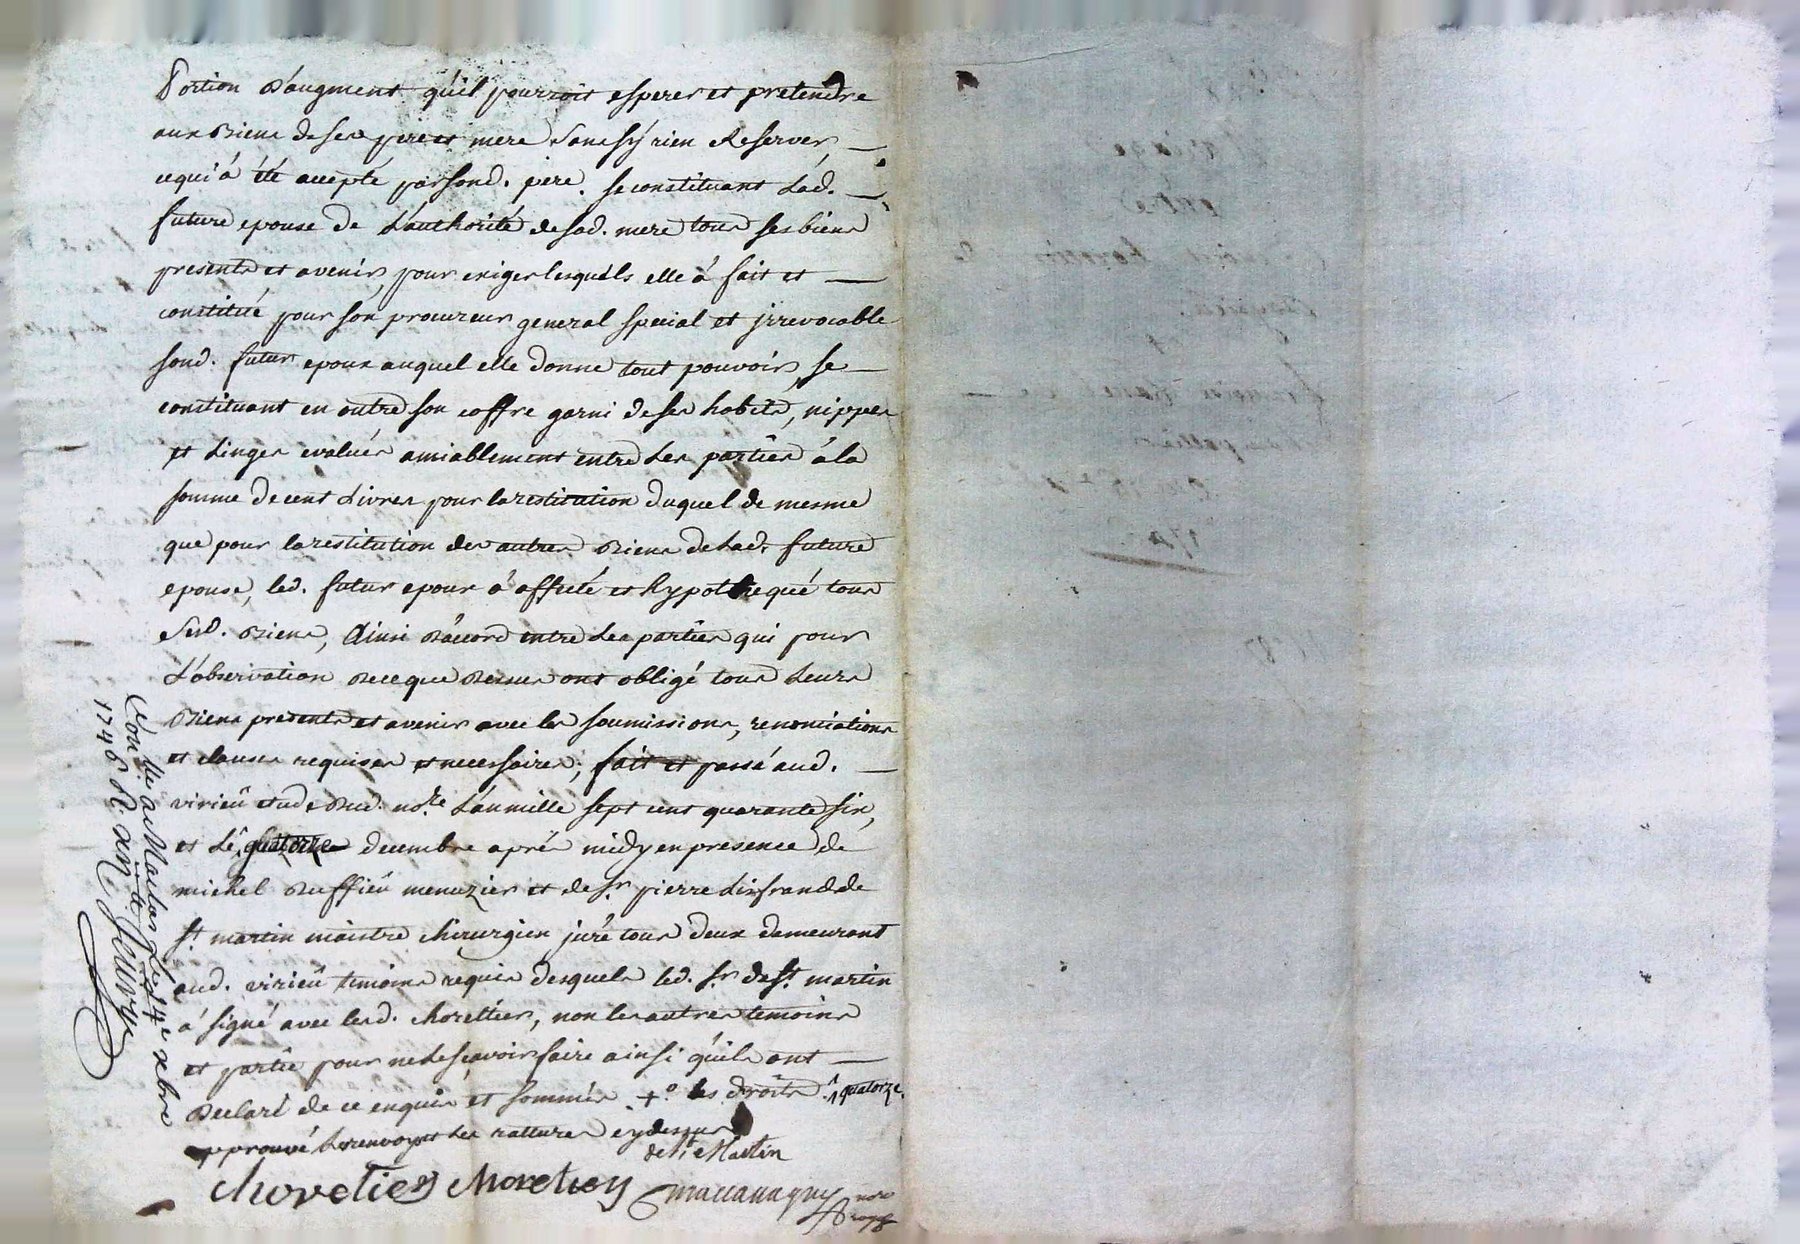 Portion d'augment qu'il pourroit esperer et pretendre
aux biens de ses pere et mere sans s'y rien Reserver
cequi à été accepté par sond. pere. se constituant Lad.
future epouse de L'authorité de sad. mere tous ses biens
presents et avenir, pour exiger lesquéls elle à fait et
constitué pour son procureur general special et jrrevocable
sond. futur epoux auquel elle donne tout pouvoir, se
constituant en outre son coffre garni de ses habits, nippes
et Linges evalués amiablement entre Les partiës à la
somme de cent Livres pour la restitution duquel de mesme
que pour la restitution des autres Biens de Lad. future
epouse, led. futur epoux à affecté et hypothequé tous
sesd. Biens, Ainsi d'accord entre Les partiës qui pour
L'observation de ce que dessus ont obligé tous Leurs
Biens presents et avenir avec les soumissions, renonciations
et clauses requises et necessaires; fait et passé aud.
virieü etude dud. no.re L'an mille sept cent quarante six,
et Lé quatorze decembre aprés midy en presence de
michel Buffieü menuzier et de Sr. pierre Linfrand de
St. martin maistre chirurgien juré tous deux demeurant
aud. virieü témoins requis desquels led. Sr. de St. martin
à signé avec lesd. chorettier, non les autres temoins
et partië pour ne Le sçavoir faire ainsi qu'ils ont
Declaré de ce enquis et sommés +º les droits. ^ quatorze.
approuvé Le renvoy et Les rattures cy dessus
de St. Martin
Chovetier Moretier
Con.lle a Le 24e xbre
1746 R.